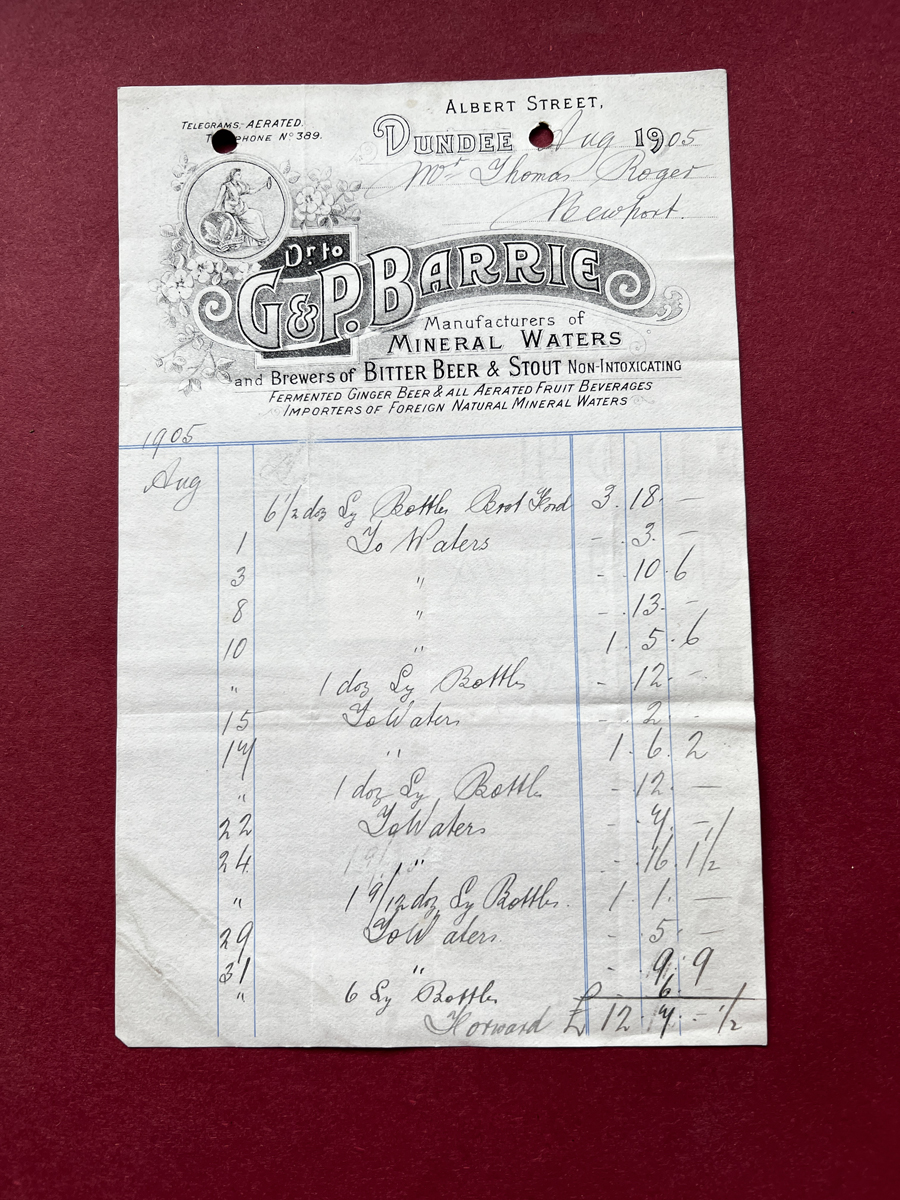 ALBERT STREET,
TELEGRAMS:- AERATED.
T PHONE Nº 389.
DUNDEE Aug 1905
Mr Thomas Roger
Newport.
Dr. to
G & P. BARRIE
Manufacturers of
MINERAL WATERS
and Brewers of BITTER BEER & STOUT NON-INTOXICATING
FERMENTED GINGER BEER & ALL AERATED FRUIT BEVERAGES
IMPORTERS OF FOREIGN NATURAL MINERAL WATERS
1905
Aug
6 1/2 doz Sy Bottles Brot Ford 3. 18. -
1 To Waters - . 3. -
3 " - . 10. 6
8 " - . 13. -
10 " 1. 5. 6
" 1 doz Sy Bottles - . 12. -
15 To Waters - . 2. -
17 " 1. 6. 2
" 1 doz Sy Bottles - . 12. -
22 To Waters - . 7. -
24 " - . 16. 1 1/2
" 1 9/12 doz Sy Bottles. 1. 1. -
29 To Waters. - . 5. -
31 " - . 9. 9
" 6 Sy Bottles 6
Forward £ 12. 7. - 1/2